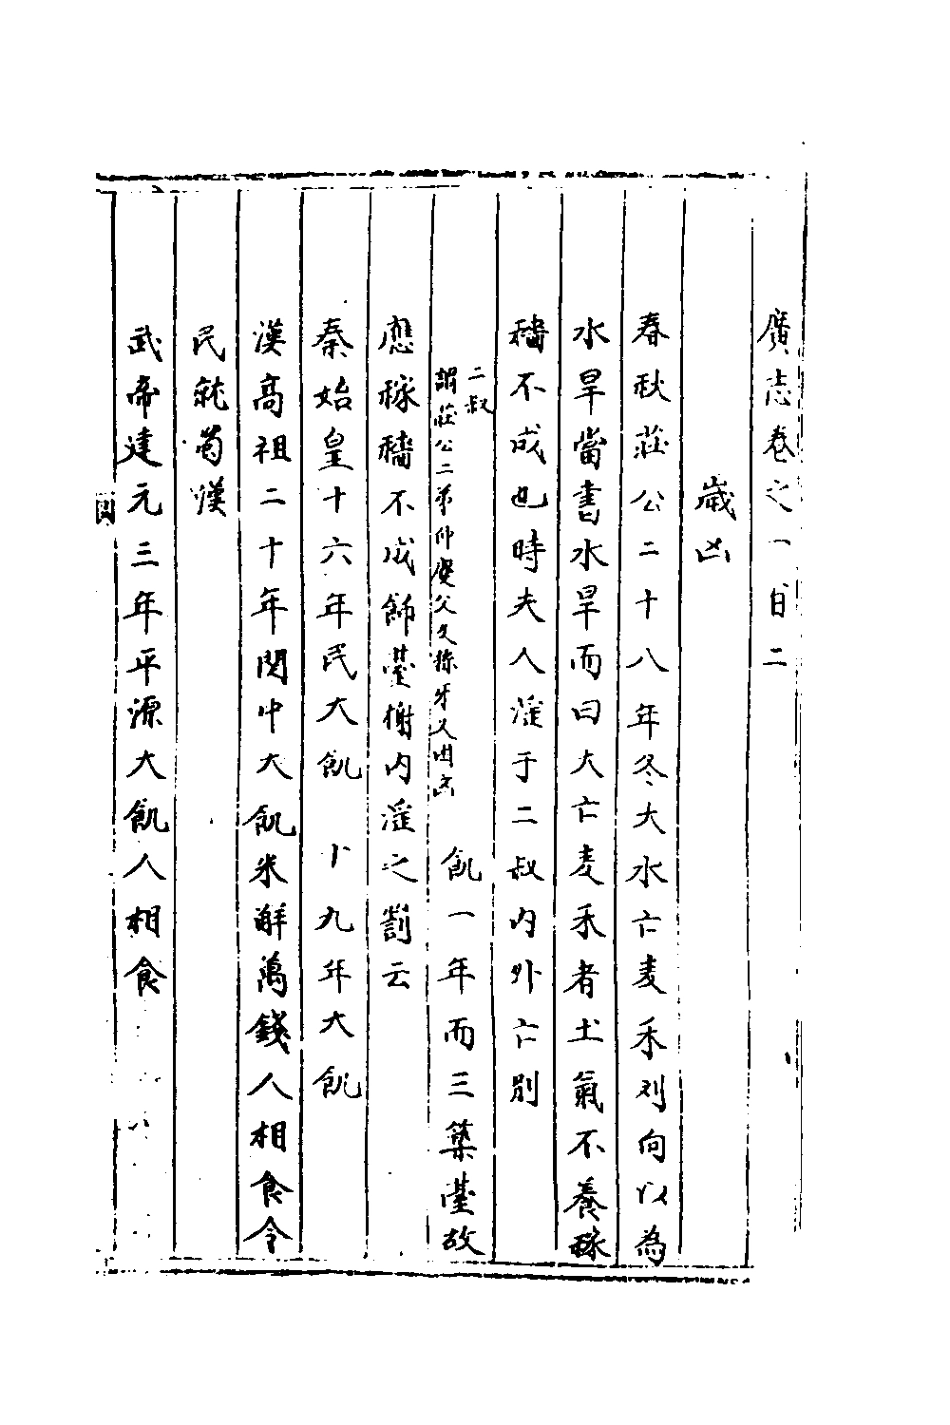 廣志卷之一百二
歲凶
春秋莊公二十八年冬大水亡麦禾刘向以為
水旱當書水旱而曰大亡麦禾者土氣不養稼
穡不成也時夫人淫于二叔内外亡別
二叔
謂莊公二弟仲慶父叔牙 飢一年而三築臺故
應稼穡不成飾臺榭内淫之罰云
秦始皇十六年民大飢 十九年大飢
漢高祖二十年関中大飢米斛萬錢人相食令
民就蜀漢
武帝建元三年平源大飢人相食